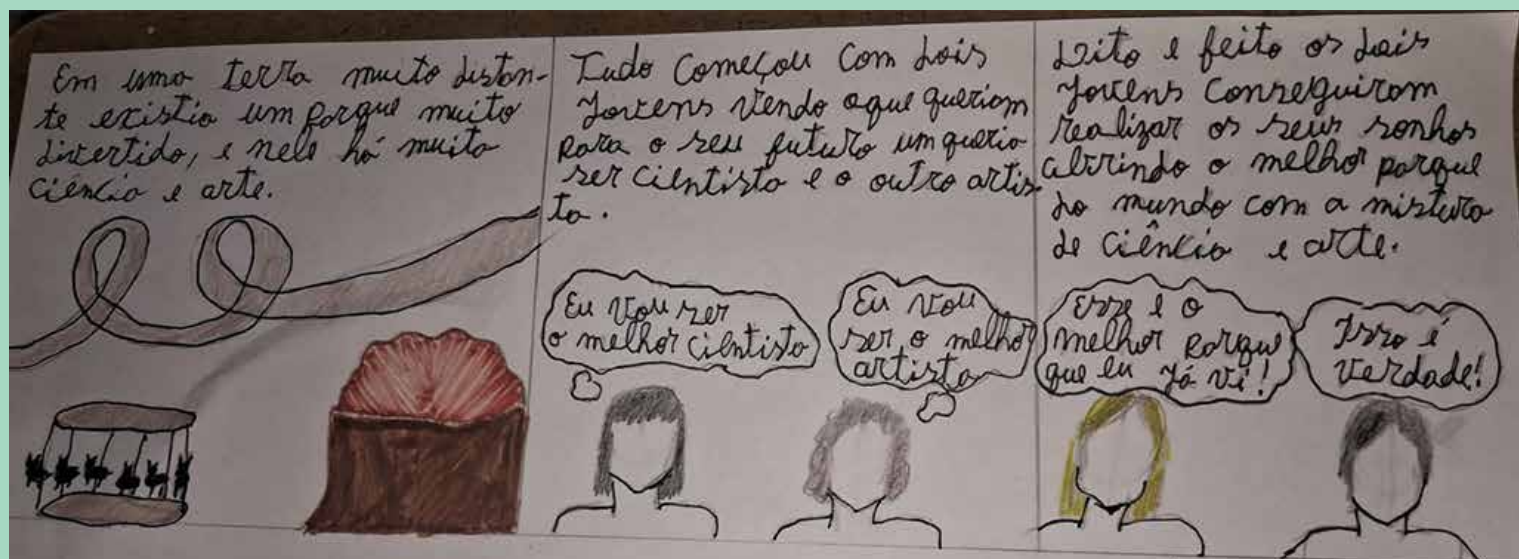 Em uma terra muito distan-
te existia um parque muito
divertido, e nele há muita
ciência e arte.
Tudo Começou com dois
jovens vendo o que queriam
para o seu futuro um queria
ser cientista e o outro artis-
ta.
Eu vou ser
o melhor cientista
Eu vou
ser o melhor
artista
Dito e feito os dois
jovens conseguiram
realizar os seus sonhos
abrindo o melhor parque
do mundo com a mistura
de ciência e arte.
Esse é o
melhor parque
que eu já vi!
Isso é
verdade!